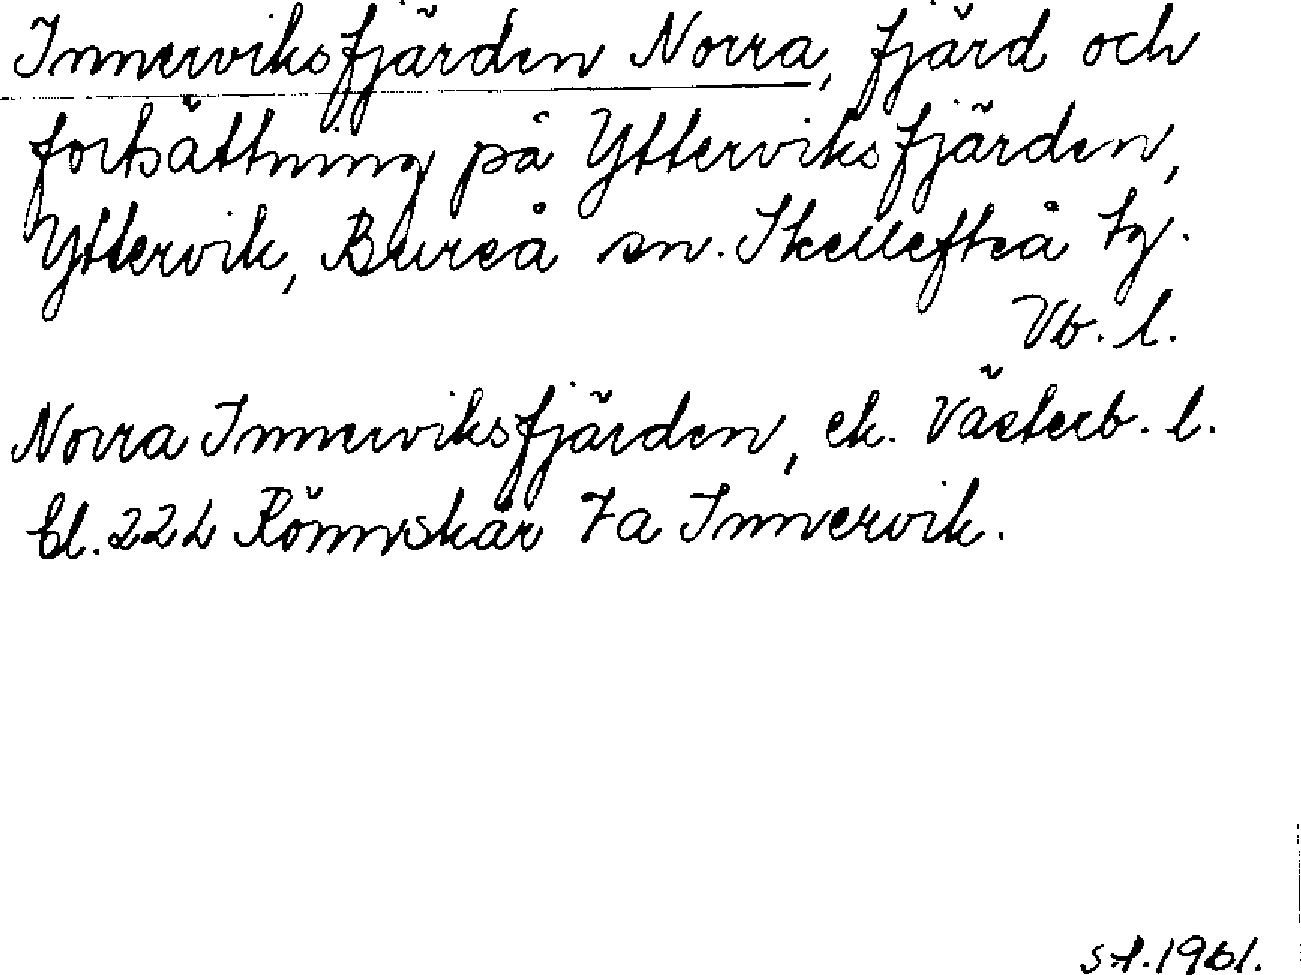 Innerviksfjärden Norra, fjärd och
fortsättning på Ytterviksfjärden,
Yttervik, Bureå sn. Skellefteå tg.
Vb. l.
Norra Innerviksfjärden, ek. Västerb. l.
bl. 22L Rönnskär 7a Innervik.
st. 1961.